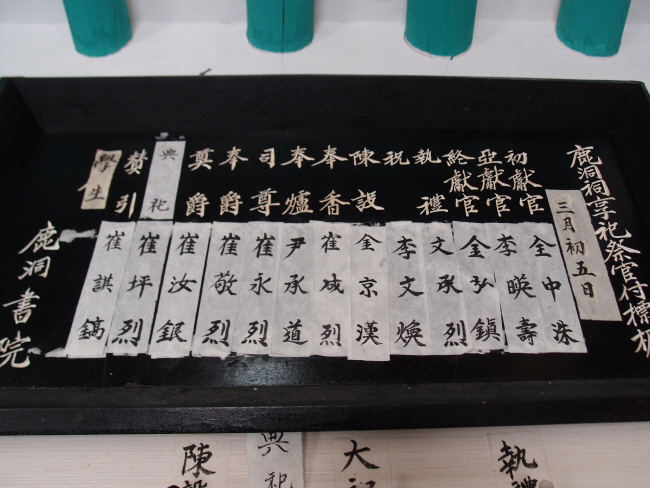 鹿洞祠享祀祭官付標板
三月初五日
初獻官
亞獻官
終獻官
執禮
祝
陳設
奉香
奉爐
司尊
奉爵
奠爵
典祀
贊引
學生
金中洙
李暎壽
金弘鎭
文承烈
李文煥
金京漢
崔成烈
尹承道
崔永烈
崔敬烈
崔汝銀
崔坪烈
崔諆鎬
鹿洞書院
執禮
大
典祀
陳設